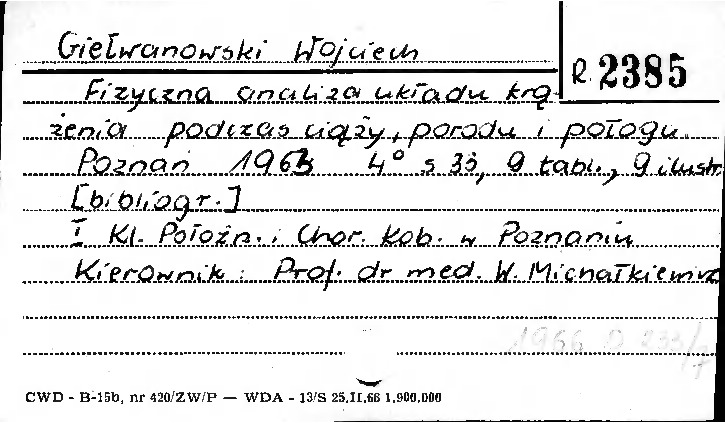 Giełwanowski Wojciech
R. 2385
Fizyczna analiza układu krą-
żenia podczas ciąży, porodu i połogu.
Poznań 1963 4° s 35, 9 tabl., 9 ilustr
[bibliogr.]
I Kl. Położn. i Chor. Kob. w Poznaniu
Kierownik: Prof. dr med. W. Michałkiewicz
1966 D 233/
CWD - B-15b, nr 420/ZW/P — WDA - 13/S 25.II.66 1,900,000